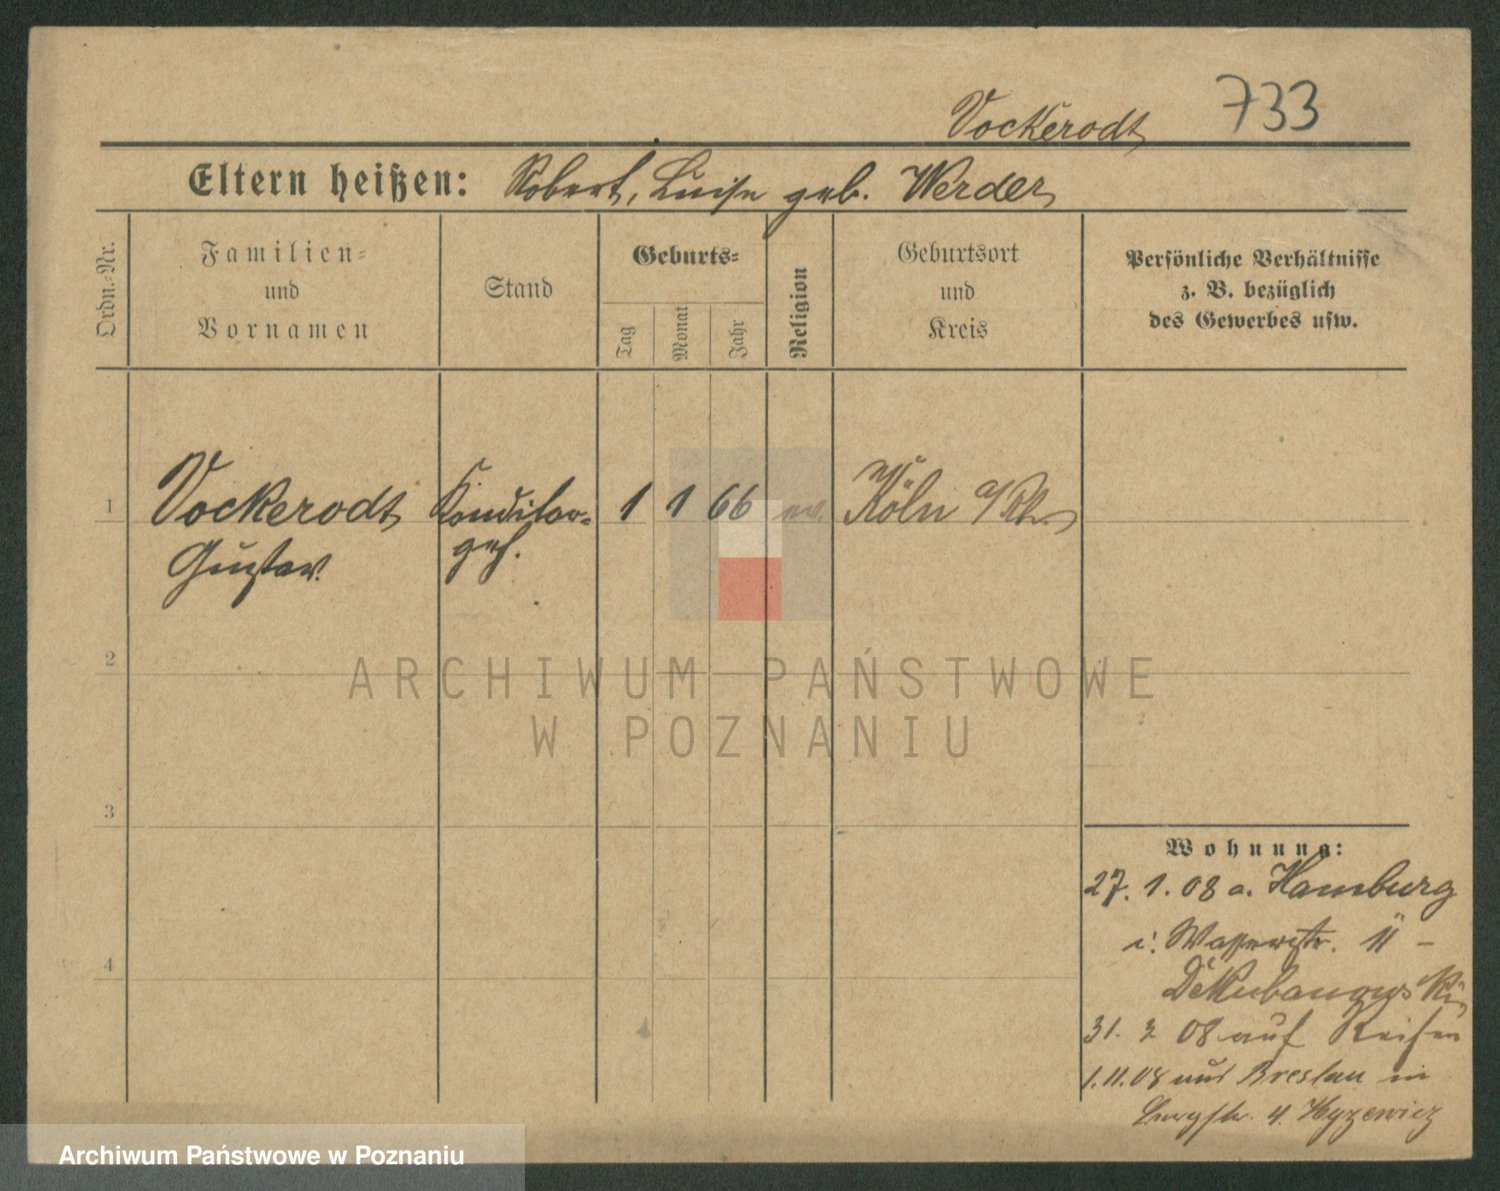 Vockerodt 733
Eltern heißen: Robert, Luise geb. Werder
Ordn.-Nr.
Familien-
und
Vornamen
Stand
Geburts-
Tag
Monat
Jahr
Religion
Geburtsort
und
Kreis
Persönliche Verhältnisse
z. B. bezüglich
des Gewerbes usw.
1 Vockerodt Konditor- 1 1 66 ev. Köln a/Rh.
Gustav geh.
2
3
4
ARCHIWUM PAŃSTWOWE
W POZNANIU
Wohnung:
27. 1. 08 a. Hamburg
i. Wasserstr. 11 -
31. 3 08 auf Reisen
1.11.08 aus Breslau in
4. Hyzewicz
Archiwum Państwowe w Poznaniu